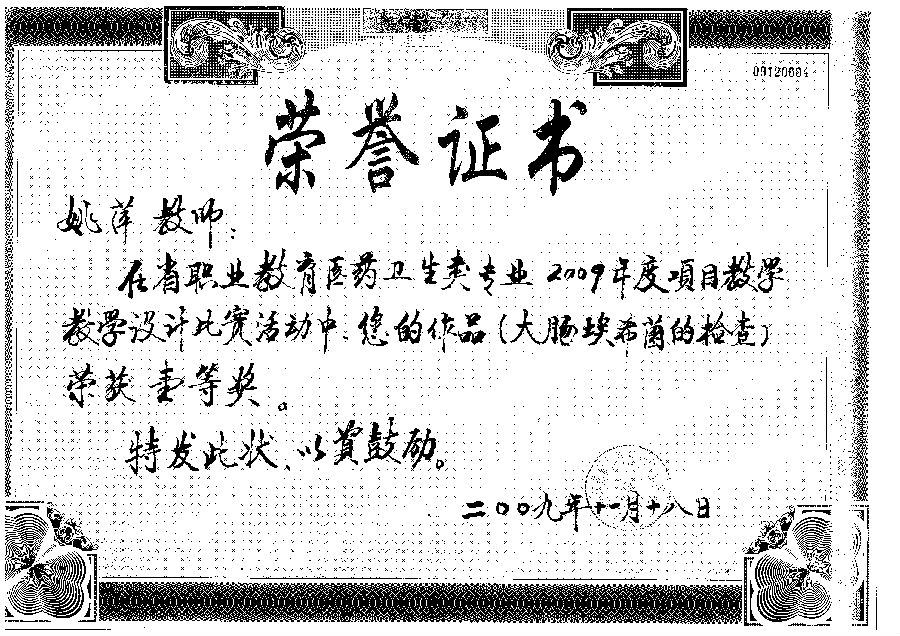 09120084
荣誉证书
姚萍 教师:
在省职业教育医药卫生类专业2009年度项目教学
教学设计比赛活动中,您的作品(大肠埃希菌的检查)
荣获 壹等奖。
特发此状,以资鼓励。
二〇〇九年十一月十八日